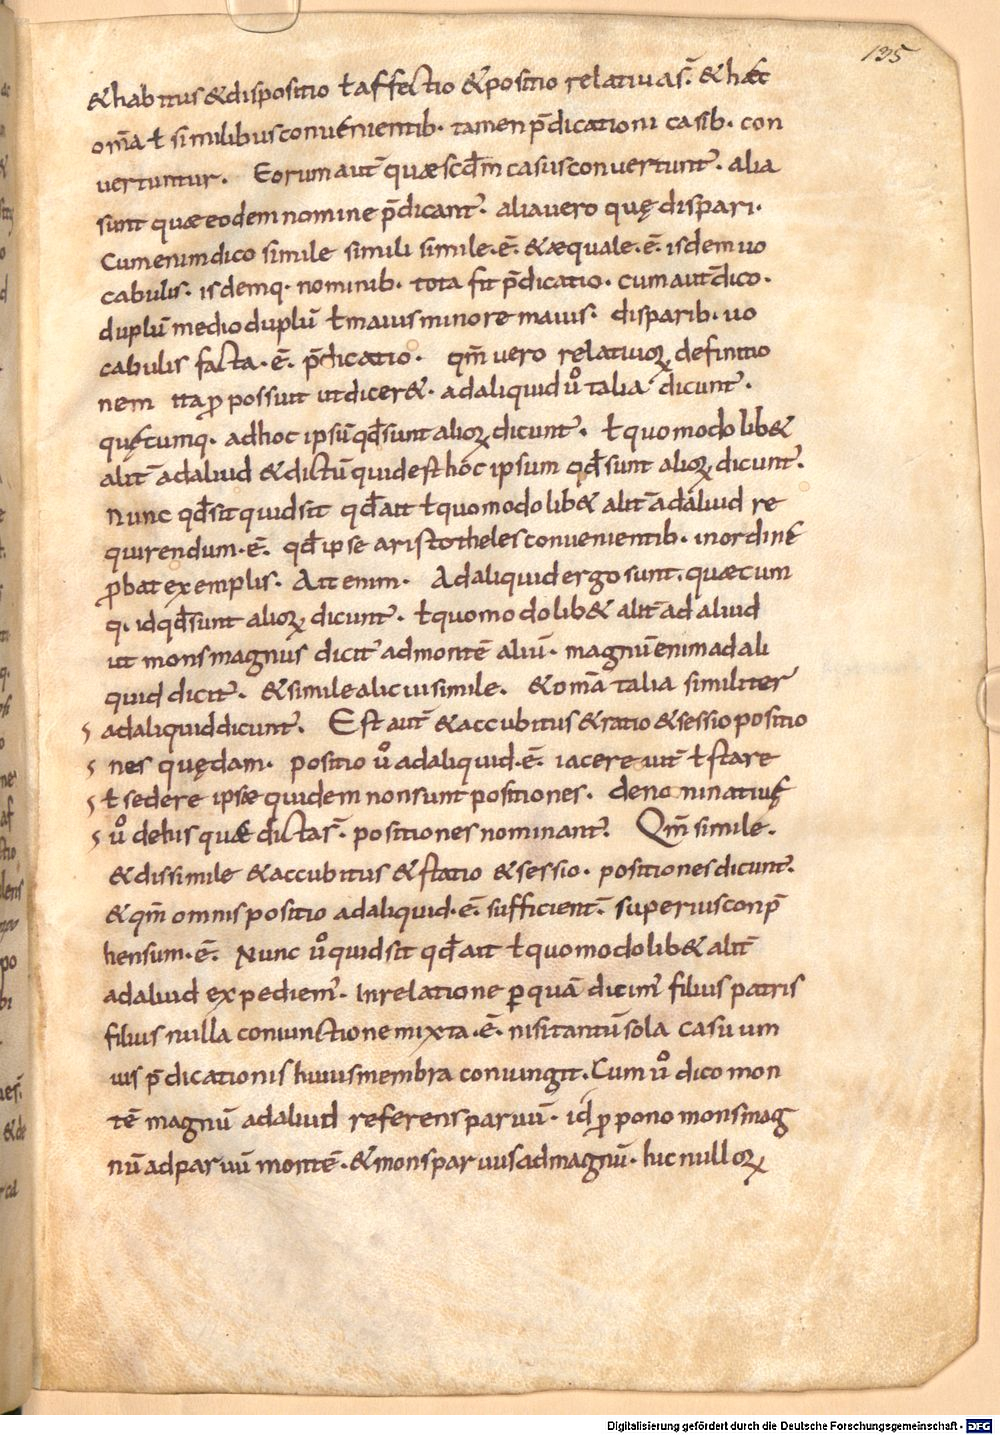 135
&habitus&dispositio ł affectio &positio relativa sī. &hæc
om̄a ł similibus convenientib. tamen p̄dicationi casib. con
vertuntur. Eorum aut̄ quæ scd̄m casus convertunt̄. alia
sunt quæ eodem nomine p̄dicant̄. alia vero quę dispari.
Cum enim dico simile simili simile .ē. &æquale .ē. isdem uo
cabulis. isdemq. nominib. tota fit p̄dicatio. cum aut̄ dico.
duplū medio duplū ł maius minore maius. disparib. uo
cabulis facta .ē. p̄dicatio. qm̄ vero relativoꝝ definitio
nem ita ꝓpossuit ut dicer&. ad aliquid ů talia dicunt̄.
quęcumq. ad hoc ipsū qd̄ sunt alioꝝ dicunt̄. ł quomodo lib&
alit̄ ad aliud &dictū quid est hoc ipsum qd̄ sunt alioꝝ dicunt̄.
Nunc qd̄ sit quid sit qd̄ ait ł quomodo lib& alit̄ ad aliud re
quirendum .ē. qd̄ ipse aristotheles convenientib. in ordine
ꝓbat exemplis. Ait enim. Ad aliquid ergo sunt. quæcum
q. id qd̄ sunt alioꝝ dicunt̄. ł quomodo lib& alit̄ ad aliud
ut mons magnus dicit̄ ad montē aliū. magnū enim ad ali
quid dicit̄. &simile alicui simile. &om̄a talia similiter
ad aliquid dicunt̄. Est aut̄ &accubitus &ratio &sessio positio
nes quędam. positio ů ad aliquid .ē. iacere uit̄ ł stare
ł sedere ipsæ quidem non sunt positiones. deno ninative
ů de his quæ dictæ sī. positiones nominant̄. Qm̄ simile.
&dissimile &accubitus &statio &sessio. positiones dicunt̄.
&qm̄ omnis positio ad aliquid .ē. sufficient̄. superius conp̄
hensum .ē. Nunc ů quid sit qd̄ ait ł quomodo lib& alit̄
ad aliud expediem̄. In relatione ꝑ quā dicim̄ filius patris
filius nulla coniunctione mixta .ē. nisi tantū sola casuum
uis p̄dicationis huius membra coniungit. Cum ů dico mon
tē magnū ad aliud referens parvū. id ꝓpono mons mag
nū ad parvū montē. &mons parvus ad magnū. hic nulloꝝ
Digitalisierung gefördert durch die Deutsche Forschungsgemeinschaft - DFG